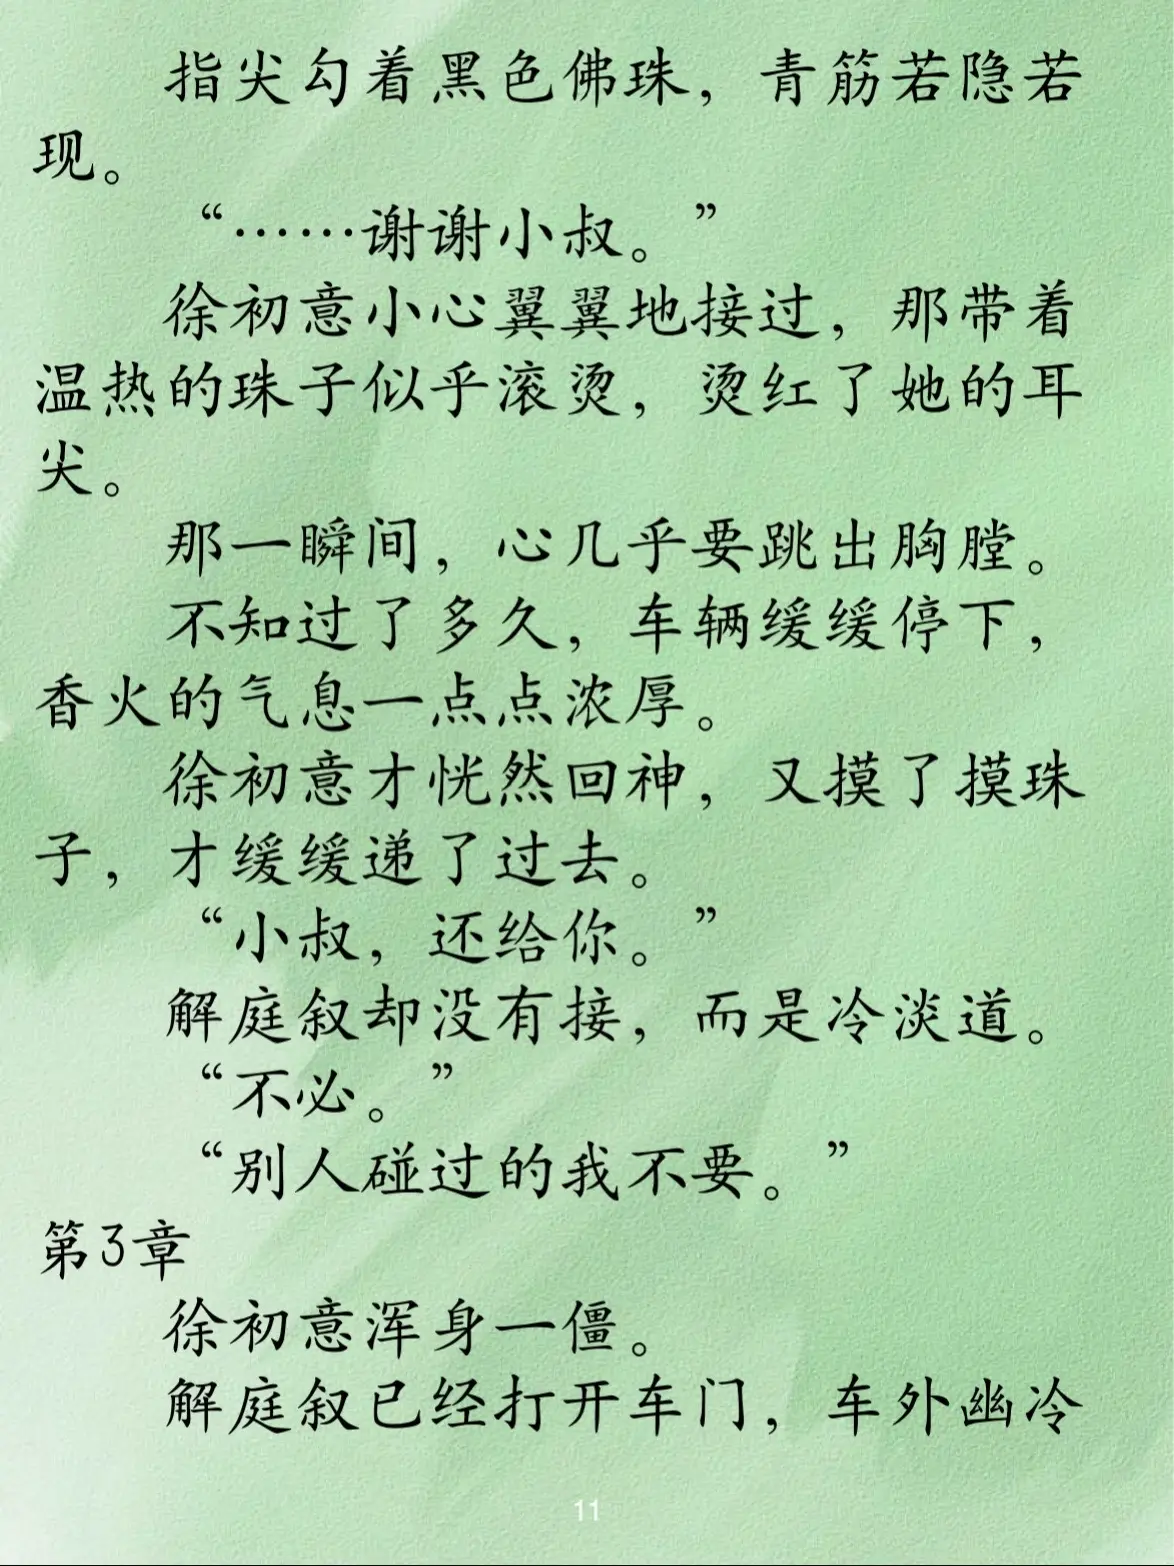 指尖勾着黑色佛珠，青筋若隐若
现。
“……谢谢小叔。”
徐初意小心翼翼地接过，那带着
温热的珠子似乎滚烫，烫红了她的耳
尖。
那一瞬间，心几乎要跳出胸膛。
不知过了多久，车辆缓缓停下，
香火的气息一点点浓厚。
徐初意才恍然回神，又摸了摸珠
子，才缓缓递了过去。
“小叔，还给你。”
解庭叙却没有接，而是冷淡道。
“不必。”
“别人碰过的我不要。”
第3章
徐初意浑身一僵。
解庭叙已经打开车门，车外幽冷
11